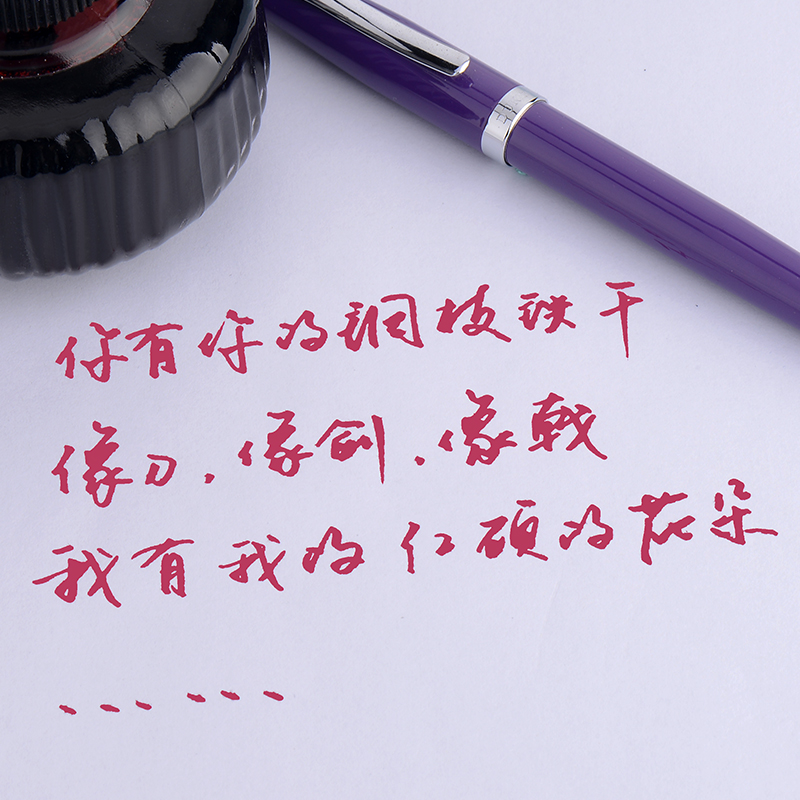 你有你的铜枝铁干
像刀，像剑，像戟
我有我的红硕的花朵
……